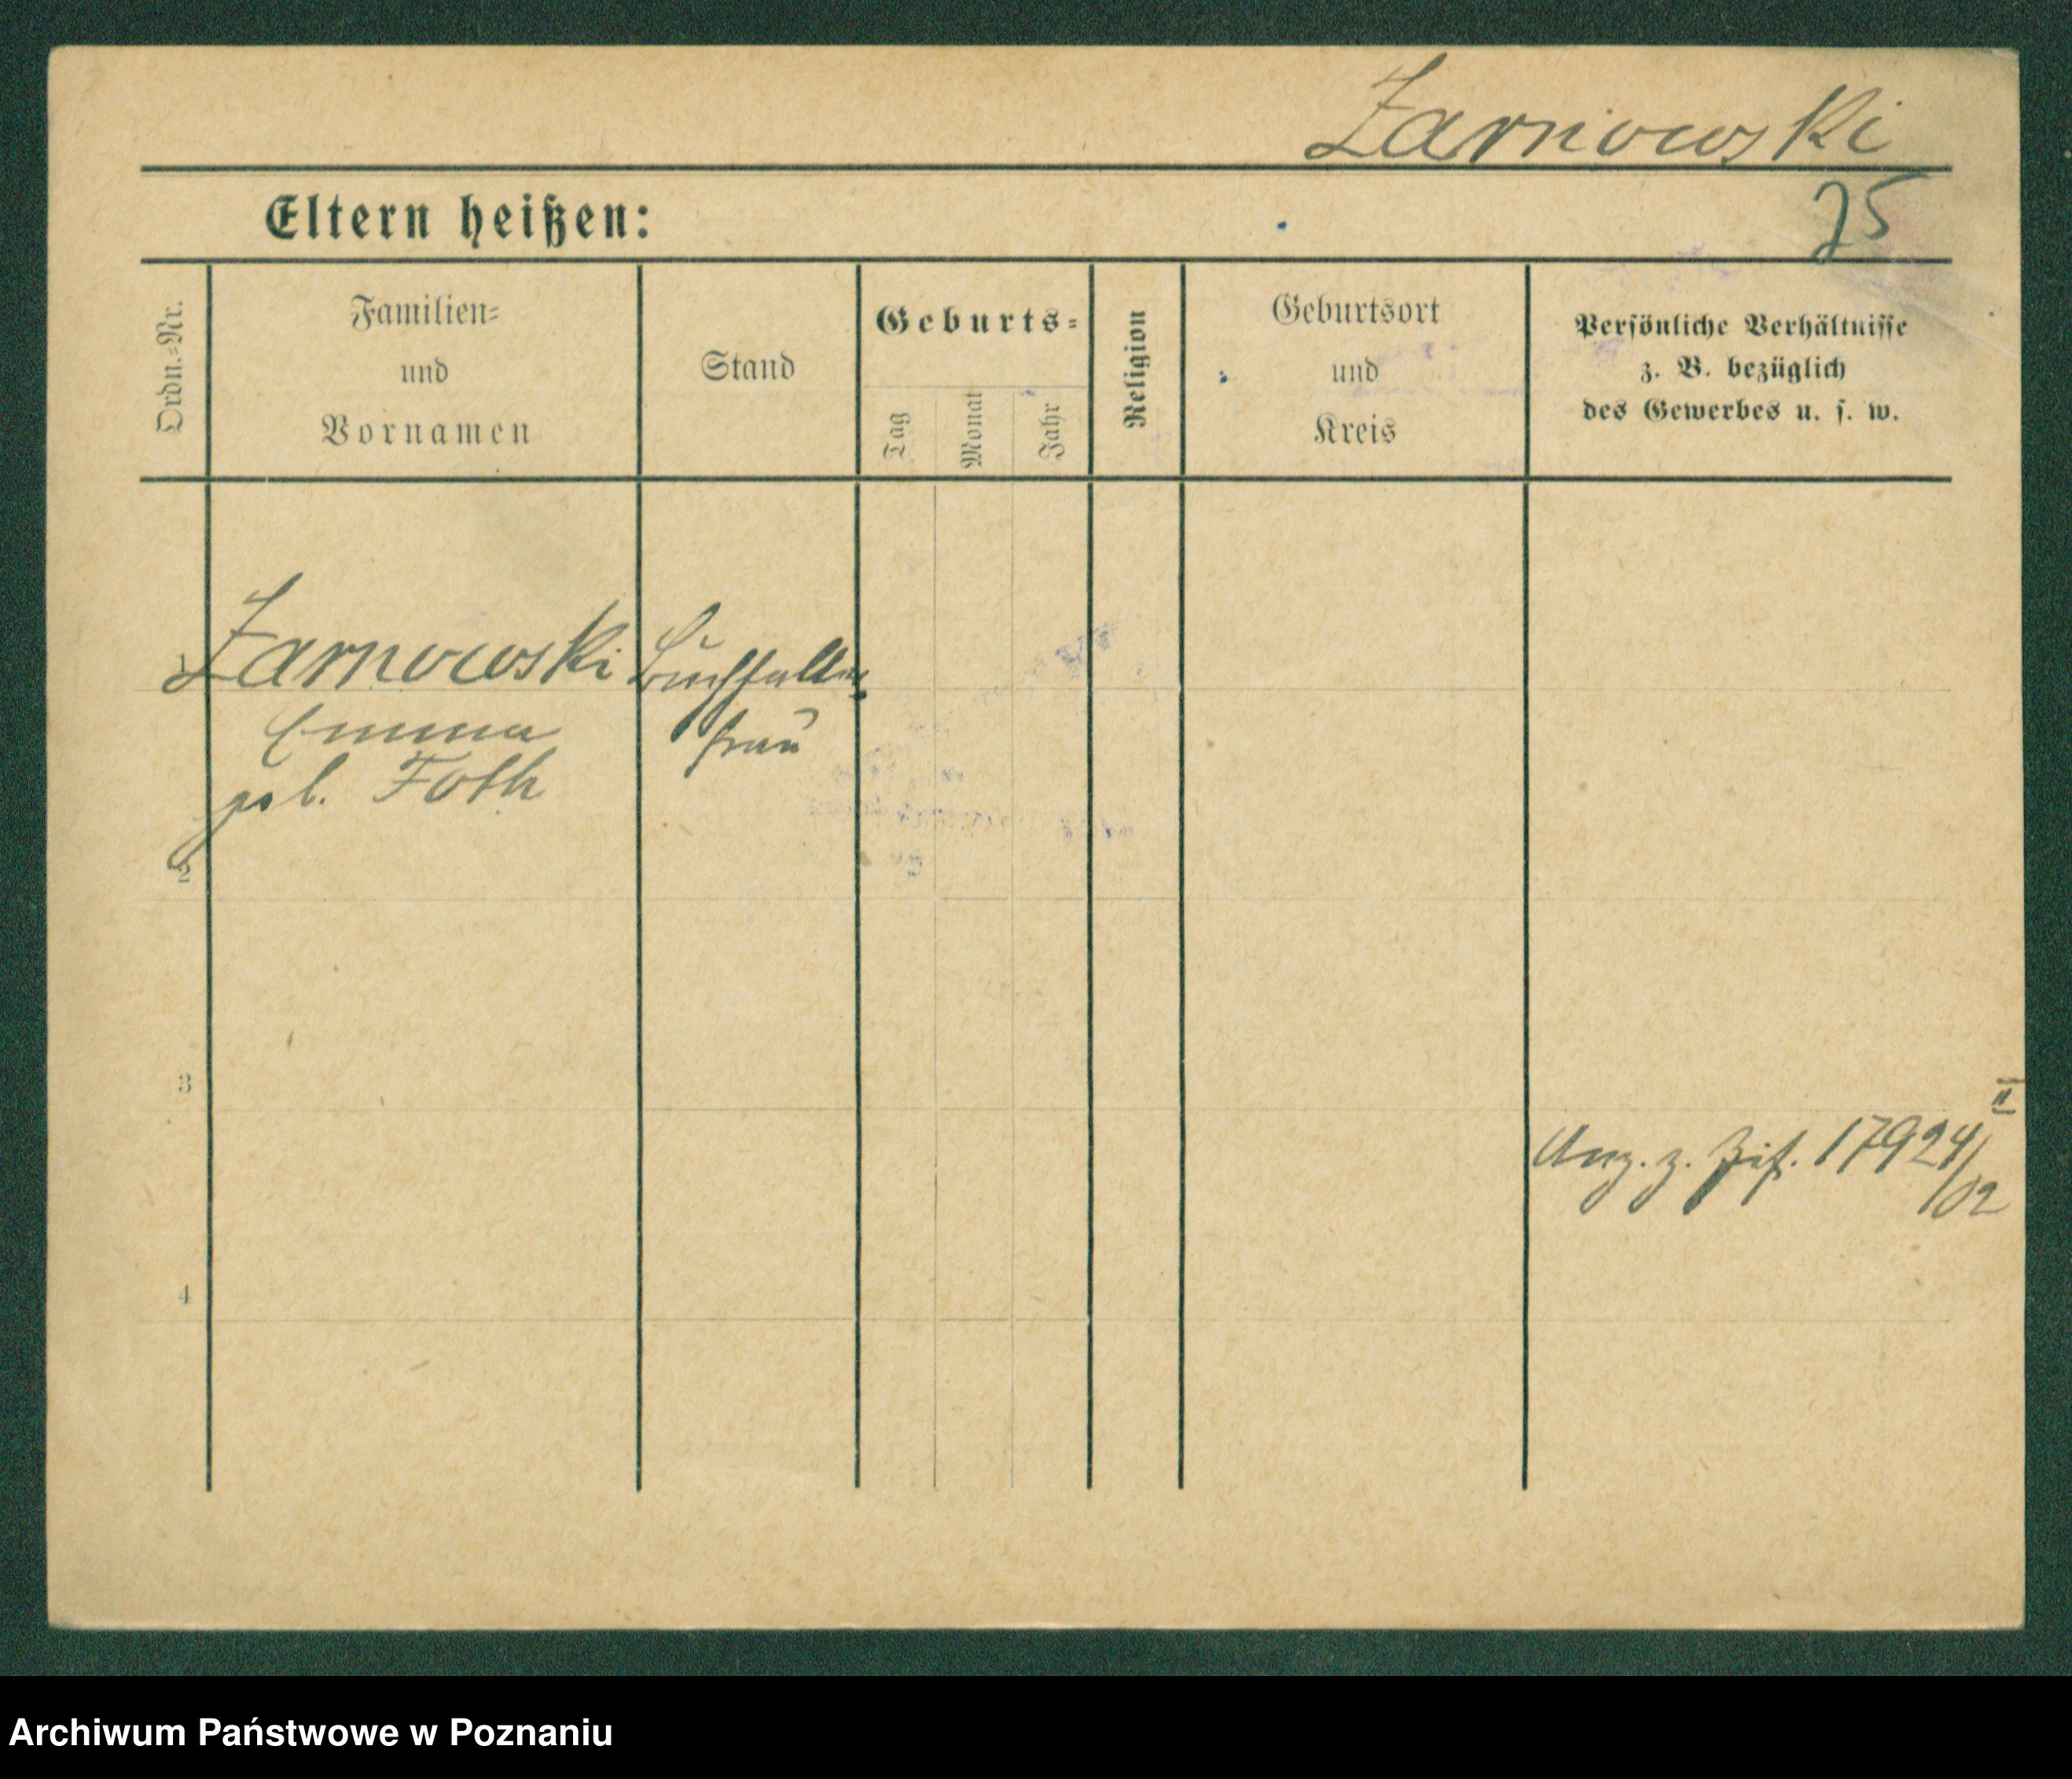 Zarnowski
Eltern heißen:
75
Ordn.-Nr.
Familien-
und
Vornamen
Stand
Geburts-
Tag
Monat
Jahr
Religion
Geburtsort
und
Kreis
Persönliche Verhältnisse
z. B. bezüglich
des Gewerbes u. s. w.
1
Zarnowski
Emma
geb. Foth
Buchhalter
frau
2
3
4
II
Anz. z. 17924/
02
Archiwum Państwowe w Poznaniu